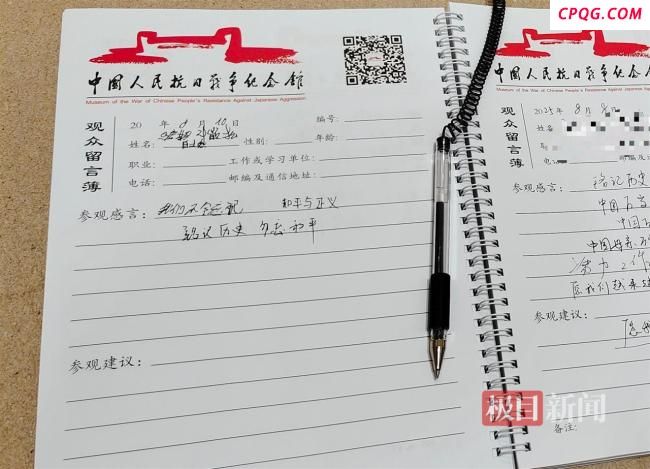 CPQG.COM
中国人民抗日战争纪念馆
Museum of the War of Chinese People's Resistance Against Japanese Aggression
观众留言簿
20 年 8 月 10 日 编号:
姓名: 性别: 年龄:
职业: 工作或学习单位:
电话: 邮编及通信地址:
参观感言: 我们不会忘记 和平与正义
铭记历史 勿忘和平
参观建议:
中国人民抗日
Museum of the War of Chinese People's Resistance Against
观众留言簿
2025 年 8 月 8
姓名
职业:
电话:
参观感言: 铭记历史
中国
中国
努力工作
愿我们越来越
参观建议:
备注:
极目新闻